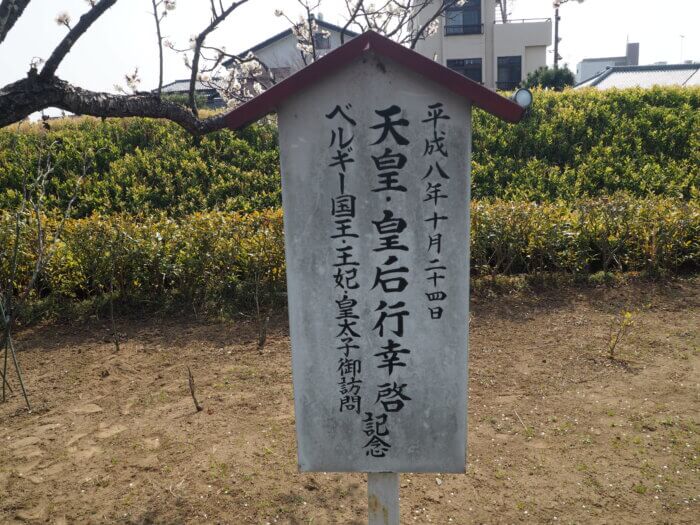 平成八年十月二十四日
天皇・皇后行幸啓
ベルギー国王・王妃・皇太子御訪問
記念